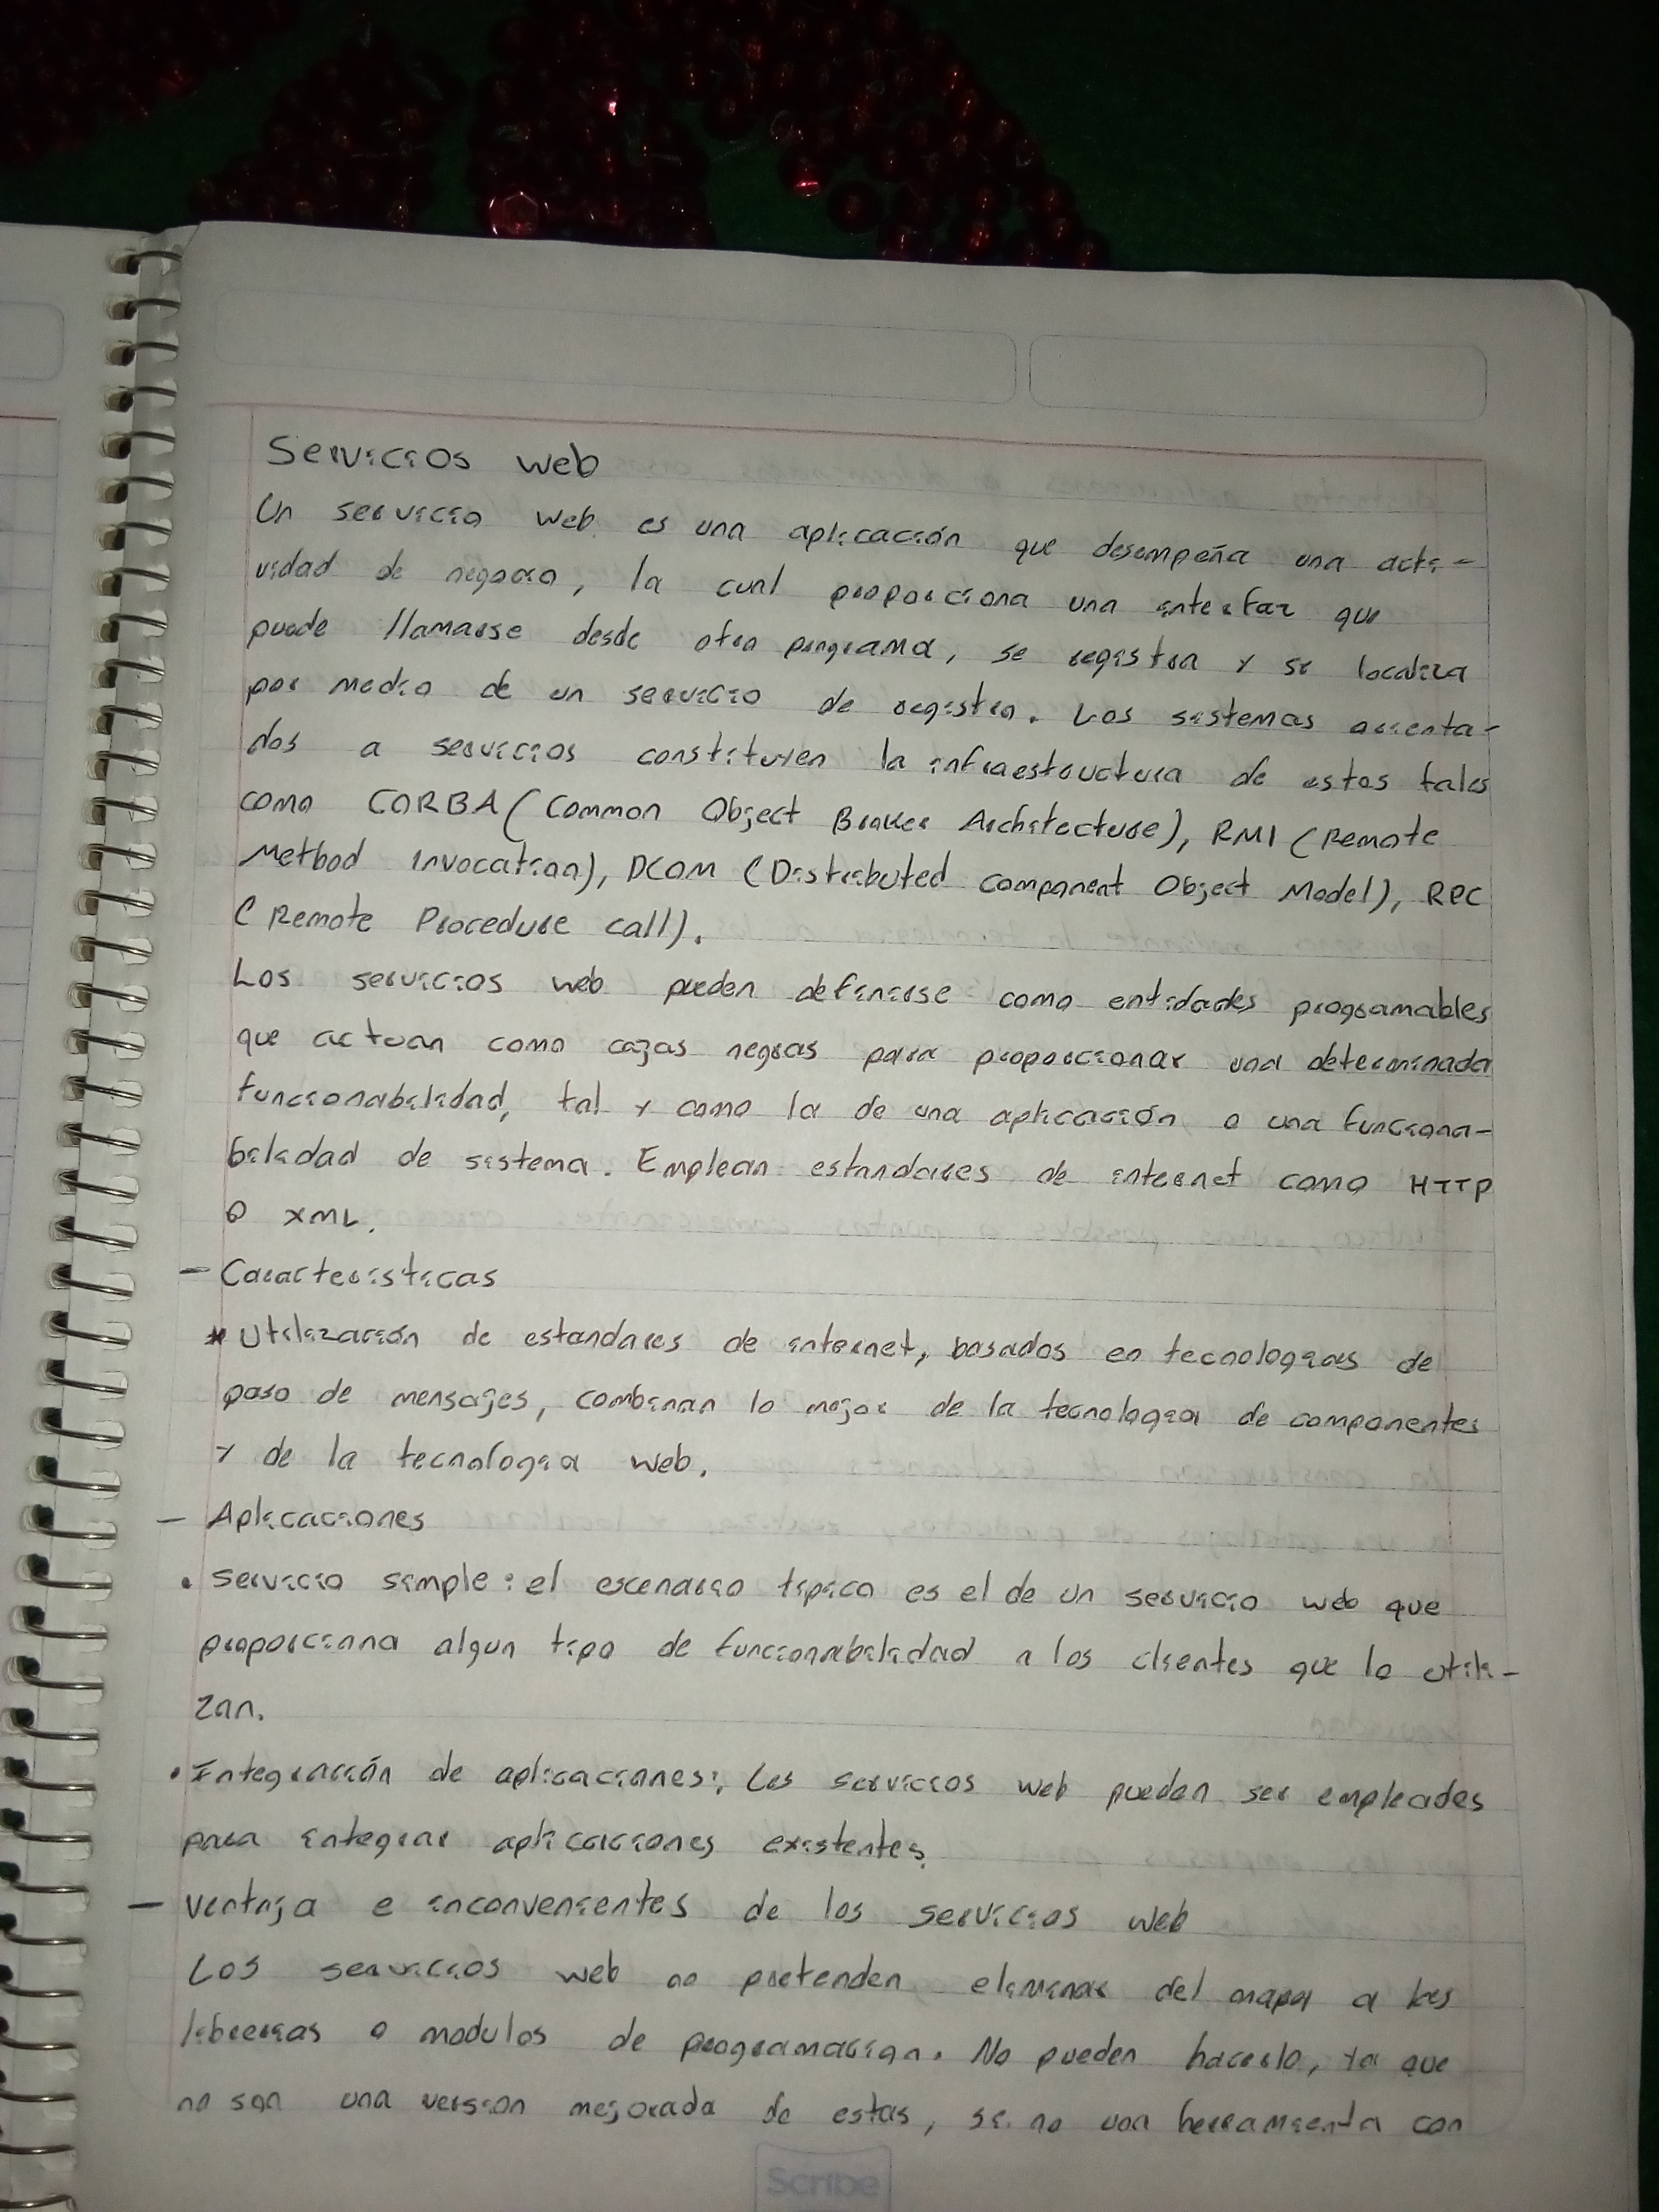 Servicios web
Un servicio web es una aplicación que desempeña una acti-
vidad de negocio, la cual proporciona una interfaz que
puede llamarse desde otro programa, se registra y se localiza
por medio de un servicio de registro. Los sistemas orienta-
dos a servicios constituyen la infraestructura de estos tales
como CORBA (Common Object Broker Architecture), RMI (Remote
Method Invocation), DCOM (Distributed component Object Model), RPC
(Remote Procedure call).
Los servicios web pueden definirse como entidades programables
que actuan como cajas negras para proporcionar una determinada
funcionabilidad, tal y como la de una aplicación o una funciona-
bilidad de sistema. Emplean estandares de internet como HTTP
o XML.
- Caracteristicas
* Utilización de estandares de internet, basados en tecnologias de
paso de mensajes, combinan lo mejor de la tecnologia de componentes
y de la tecnologia web.
- Aplicaciones
• Servicio simple: el escenario tipico es el de un servicio web que
proporciona algun tipo de funcionabilidad a los clientes que lo utili-
zan.
• Integración de aplicaciones: Los servicios web pueden ser empleados
para integrar aplicaciones existentes.
- Ventaja e inconvenientes de los servicios web
Los servicios web no pretenden eliminar del mapa a las
librerias o modulos de programacion. No pueden hacerlo, ya que
no son una version mejorada de estas, si no una herramienta con
Scribe